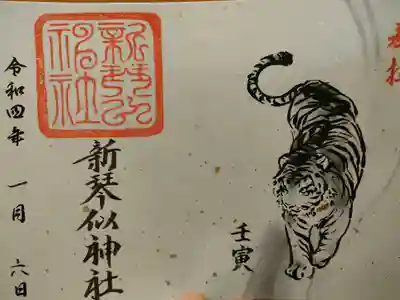 奉拝
壬寅
新琴似神社
新琴似
神社
令和四年 一月 六日